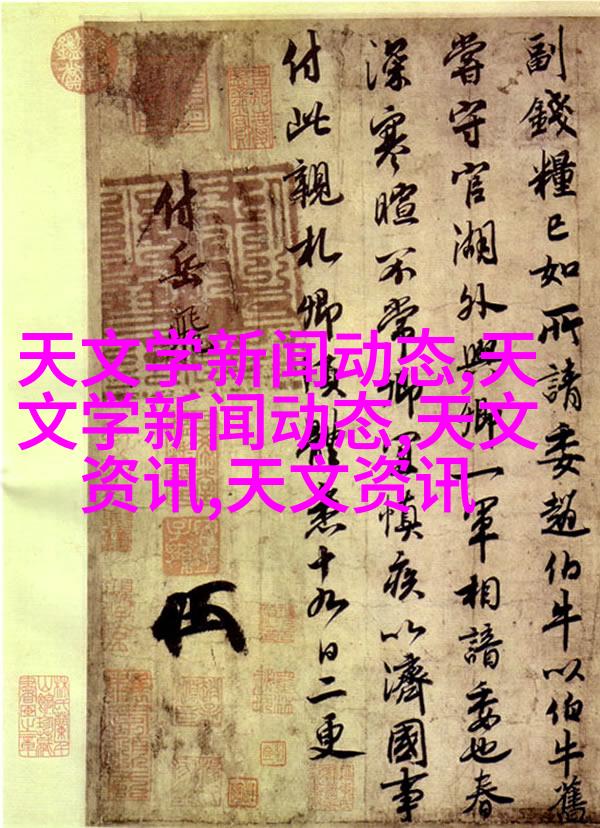 天文学新闻动态,天
文学新闻动态,天文
资讯,天文资讯
副錢糧已如所請委趙伯牛以伯牛舊
嘗守官湖外與卿一軍相諳委也春
深寒暄不常卿宜慎疾以濟國事
付此親札卿須體悉十九日二更
付岳飛